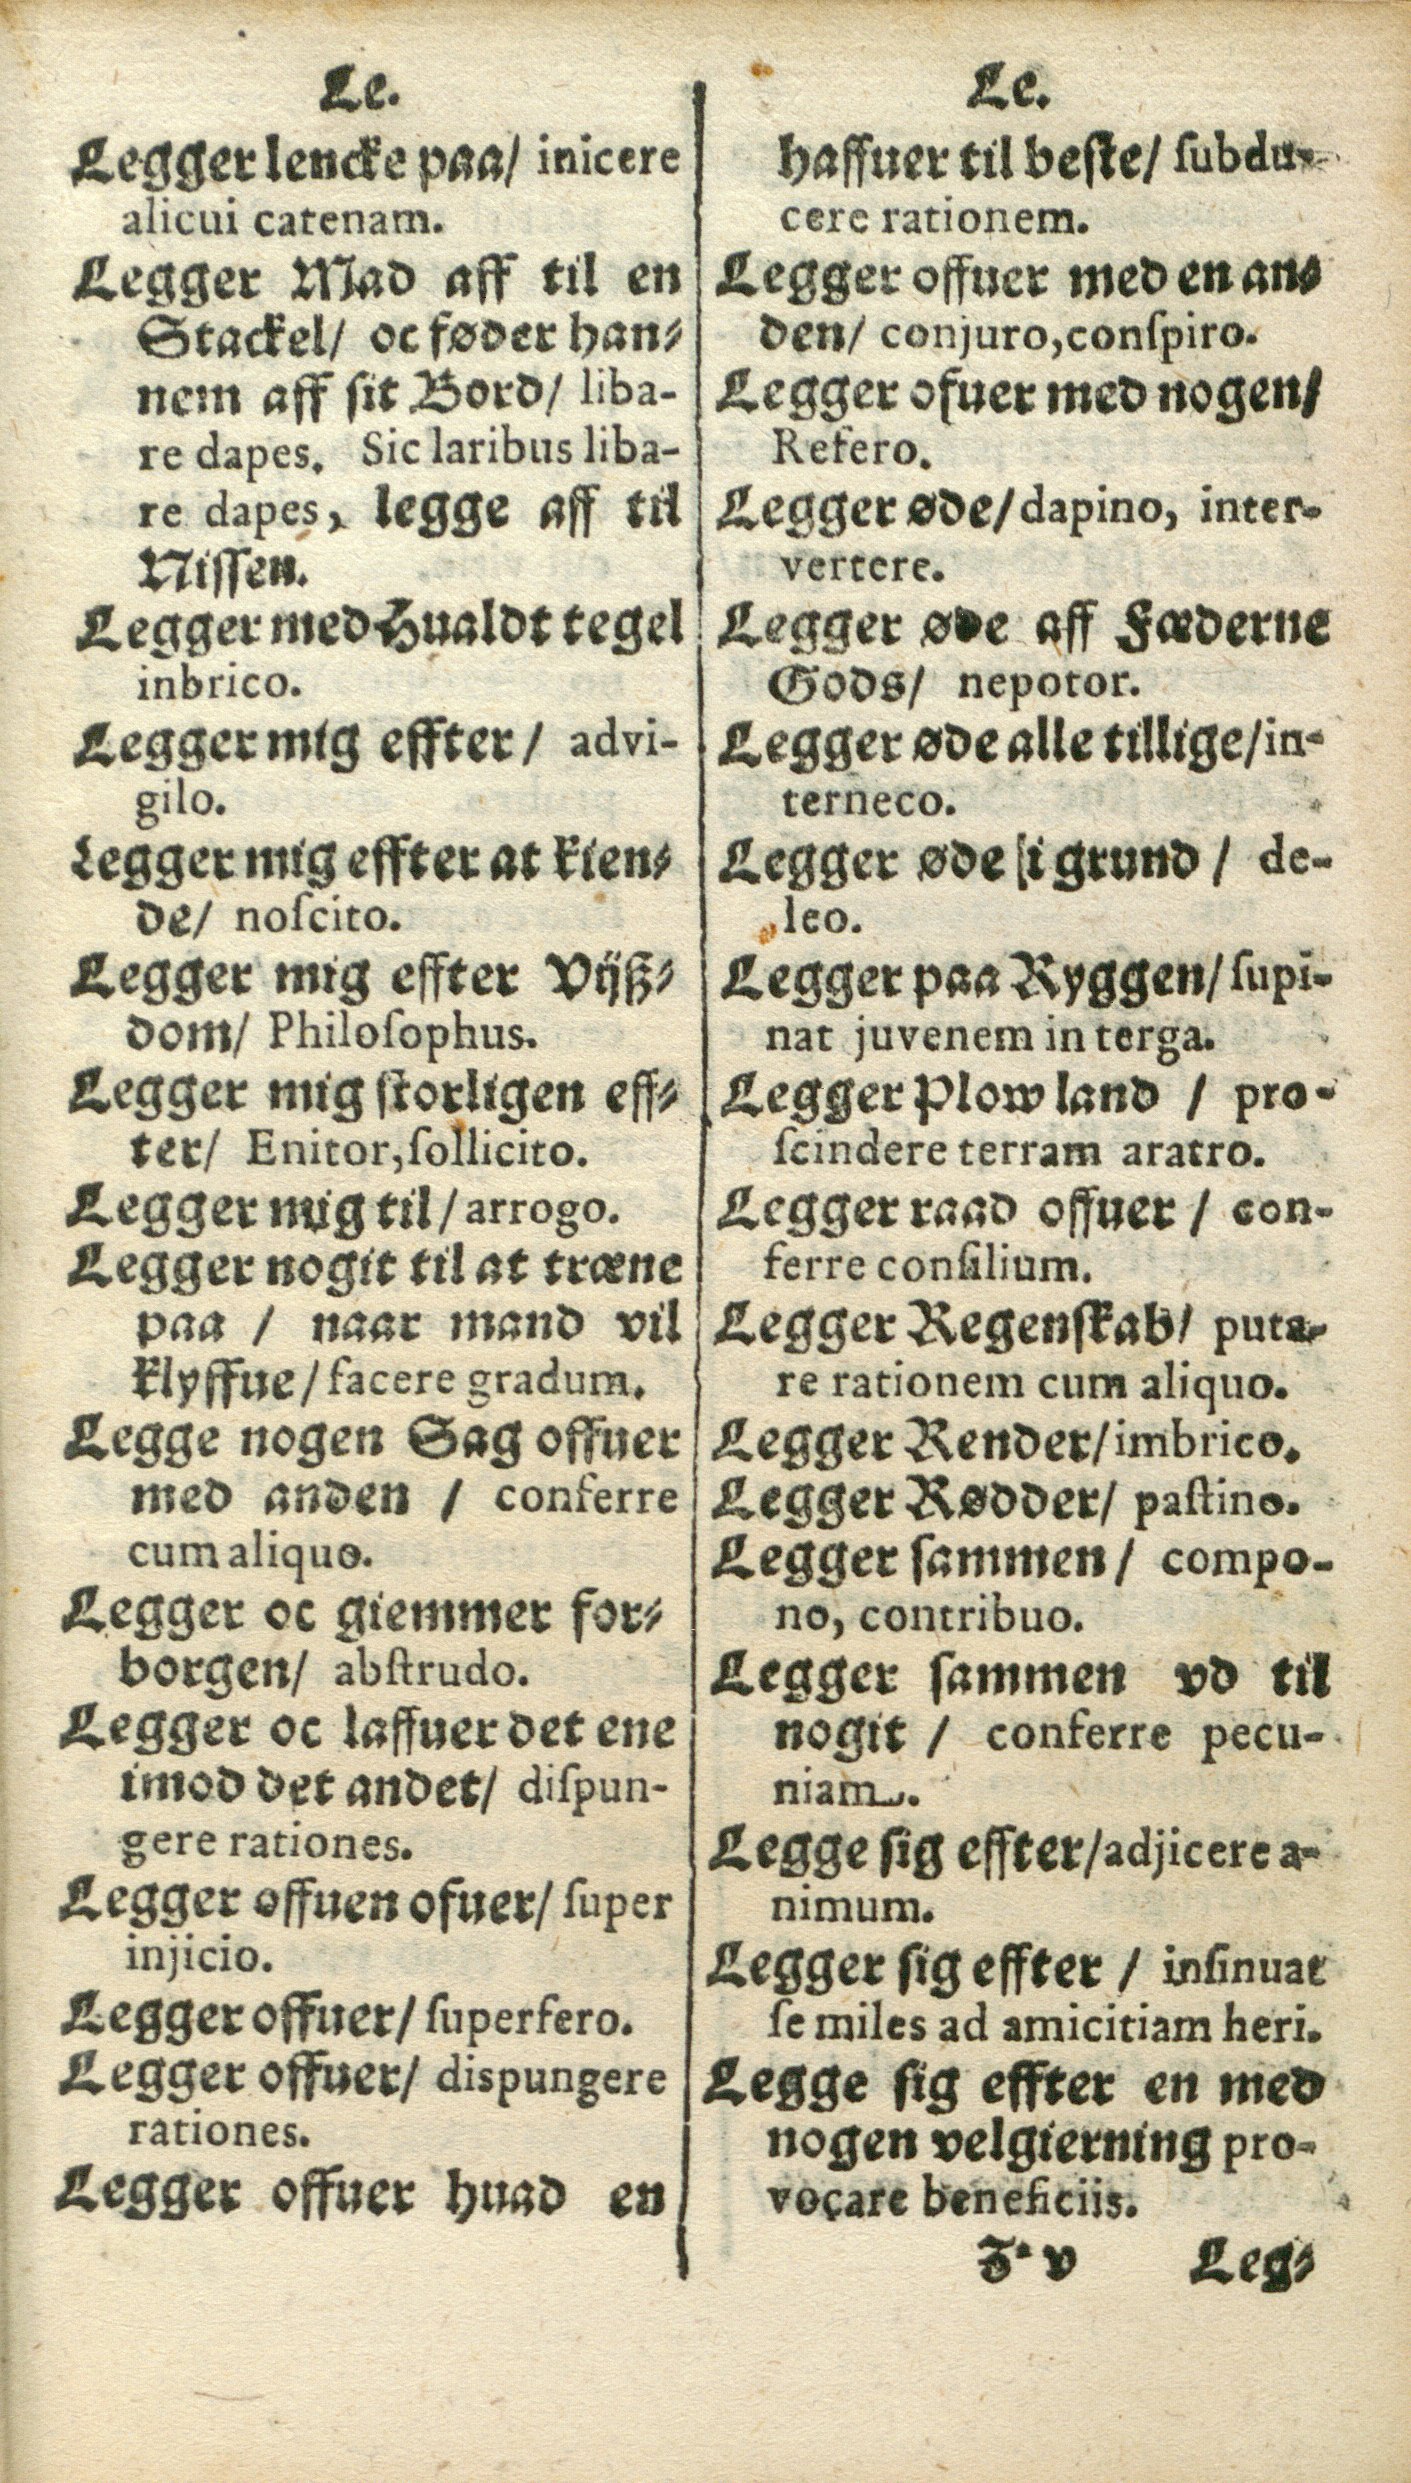 Le.
Legger lencke paa/ inicere
alicui catenam.
Legger Mad aff til en
Stackel/ oc føder han-
nem aff sit Bord/ liba-
re dapes. Sic laribus liba-
re dapes, legge aff til
Nissen.
Legger med Hualdt tegel
inbrico.
Legger mig effter/ advi-
gilo.
Legger mig effter at kien-
de/ noſcito.
Legger mig effter Vijß-
dom/ Philoſophus.
Legger mig storligen eff-
ter/ Enitor, ſollicito.
Legger mig til/ arrogo.
Legger nogit til at træne
paa / naar mand vil
klyffue/ facere gradum.
Legge nogen Sag offuer
med anden / conferre
cum aliquo.
Legger oc giemmer for-
borgen/ abſtrudo.
Legger oc laffuer det ene
imod det andet/ diſpun-
gere rationes.
Legger offuen ofuer/ ſuper
injicio.
Legger offuer/ ſuperfero.
Legger offuer/ dispungere
rationes.
Legger offuer huad en
Le.
haffuer til beſte/ ſubdu-
cere rationem.
Legger offuer med en an-
den/ conjuro, conſpiro.
Legger ofuer med nogen/
Refero.
Legger øde/ dapino, inter-
vertere.
Legger øde aff Fæderne
Gods/ nepotor.
Legger øde alle tillige/ in-
terneco.
Legger øde i grund / de-
leo.
Legger paa Ryggen/ ſupi-
nat juvenem in terga.
Legger Plow land / pro-
ſcindere terram aratro.
Legger raad offuer / con-
ferre conſilium.
Legger Regenſkab/ puta-
re rationem cum aliquo.
Legger Render/ imbrico.
Legger Rødder/ paſtino.
Legger ſammen/ compo-
no, contribuo.
Legger ſammen vd til
nogit / conferre pecu-
niam.
Legge ſig effter/ adjicere a-
nimum.
Legger ſig effter / inſinuat
ſe miles ad amicitiam heri.
Legge ſig effter en med
nogen velgierning pro-
vocare beneficiis.
Z v Leg-